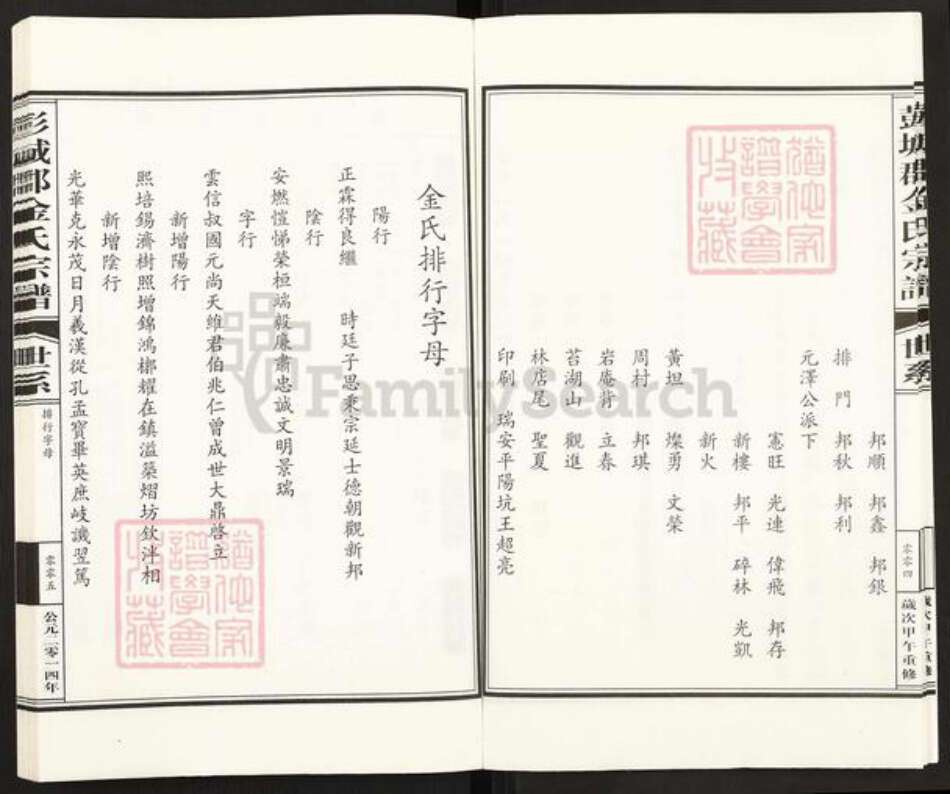 彭城郡金氏宗譜
世系
零零四
歲次甲午重修
邦順 邦鑫 邦銀
排門 邦秋 邦利
元澤公派下
憲旺 光連 偉飛 邦存
新樓 邦平 碎林 光凱
新火
黃坦 燦勇 文榮
周村 邦琪
岩庵背 立春
苔湖山 觀進
林店尾 聖夏
印刷 瑞安平陽坑王超亮
猶他家
譜學會
收藏
金氏排行字母
陽行
正霖得良繼 時廷子思秉宗廷士德朝觀新邦
陰行
安燃愷悌榮桓端毅廉肅忠誠文明景瑞
字行
雲信叔國元尚天維君伯兆仁曾成世大鼎啓立
新增陽行
熙培錫濟樹照增錦鴻榔耀在鎮溢築熠坊欽沣相
新增陰行
光華克永茂日月羲漢從孔孟寶畢英庶岐讖翌篤
猶他家
譜學會
收藏
彭城郡金氏宗譜
世系
排行字母
零零五
公元二零一四年
FamilySearch